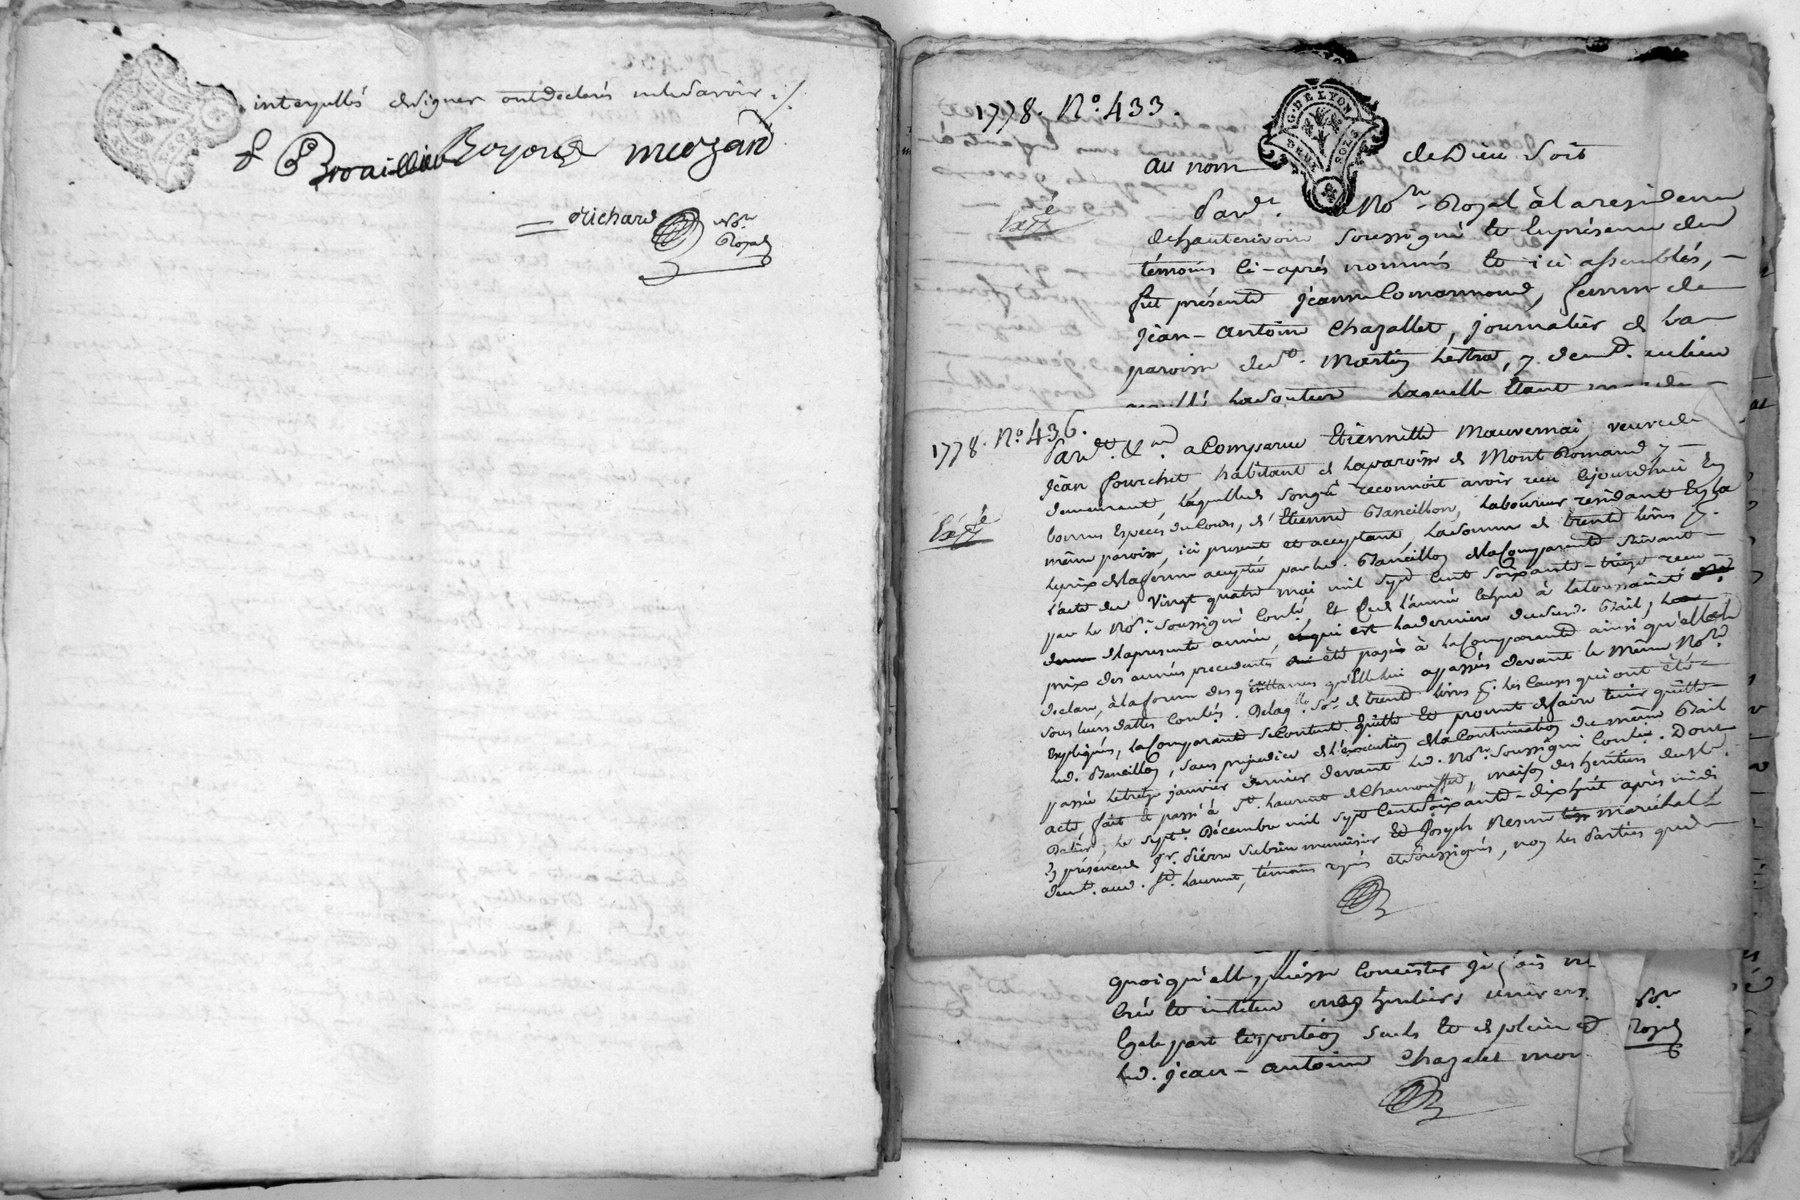 interpellés de signer ont declarés ne le savoir ./.
Brouillier Boyord mezard
Richard Nore
Royal
1778. No. 433.
G. DE LYON
DEUX SOLS
au nom de Dieu Soit
Expé
Pardt. le Nore. Royal à la residence
de hauterivoire soussigné et en présence des
témoins ci-après nommés et ici assemblés,
fut présente jeanne Comarmond, femme de
jean-antoine Chazallet, journalier de la
paroisse de St. Martin Lestra, y demt. au lieu
laquelle étant
1778. No. 436.
Pardt. &a. a Comparue Etiennette Mauvernai, veuve de
jean fourchet habitant de la paroisse de Mont Romand y
demeurant, laquelle de son gré reconnoit avoir reçu cejourd'hui En
bonnes Especes du Cours, d'Etienne Bancillon, laboureur residant En la
même paroisse, ici present et acceptant, la somme de trente livres pr.
Expé
le prix de la ferme acceptée par led. Bancillon de la Comparante suivant
l'acte du vingt quatre mai mil sept Cent soixante-treize reçu
par le Nore. soussigné Conlé. Et Ce de l'année échue à la toussaint
de la presente année, qui est la derniere dudit. Bail, le
prix des années precedentes été payés à la Comparante ainsi qu'elle le
declare, à la forme des quittances qu'elle lui a passées devant le même Nore.
sous leurs dattes Conlées. De laqlle. Soe. de trente livres pr. les Causes qui ont été
Expliquées, la Comparante se Contente quitte Et promet de faire tenir quitte
led. Bancillon, sans prejudice de l'execution de la Continuation du même Bail
passée le treize janvier dernier devant led. Nore. soussigné Conlée. Dont
acte fait et passé à St. laurent de Chamousset, maison des héritiers du Sr.
le sept. Décembre mil sept Cent soixante-dix huit après midi
En présence Sr. Pierre Subrin menuisier Et Joseph Resin maréchal
demt. aud. St. laurent, témoins requis et soussignés, non les Parties qui de
quoi qu'elle puisse Concister je fais no
crée et institue mes héritiers univers
Egale part et portion seuls et de plein d
led. jean-antoine Chazalet mon
Nore
Royal